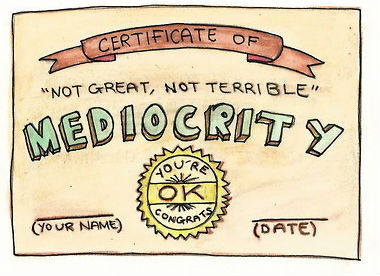 CERTIFICATE OF
"NOT GREAT, NOT TERRIBLE"
MEDIOCRITY
YOU'RE
OK
CONGRATS
(YOUR NAME)
(DATE)